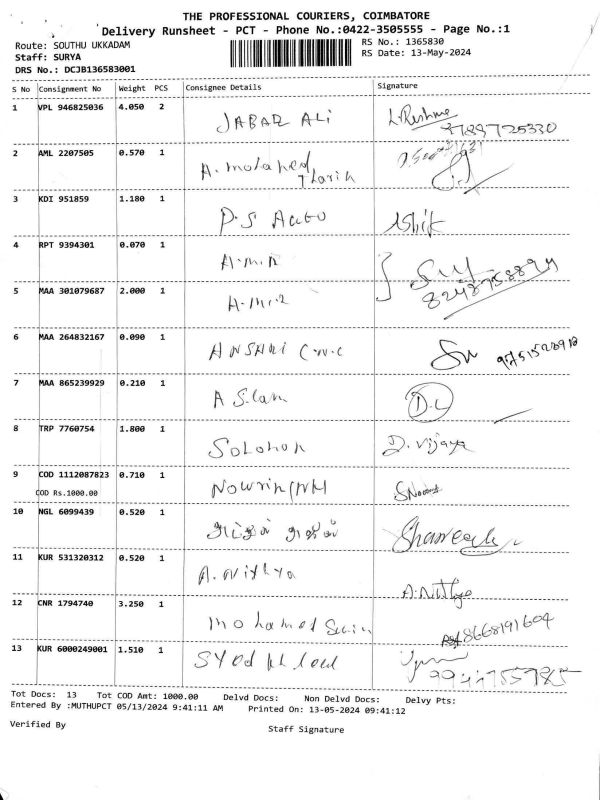 THE PROFESSIONAL COURIERS, COIMBATORE
Delivery Runsheet - PCT - Phone No.:0422-3505555 - Page No.:1
Route: SOUTHU UKKADAM RS No.: 1365830
Staff: SURYA RS Date: 13-May-2024
DRS No.: DCJB136583001
S No Consignment No Weight PCS Consignee Details Signature
1 VPL 946825036 4.050 2 JABAR ALI
2 AML 2207505 0.570 1 A. mohamed
3 KDI 951859 1.180 1 P.S Auto Ashik
4 RPT 9394301 0.070 1 A.M.R
8248758899
5 MAA 301079687 2.000 1 A.M.R
6 MAA 264832167 0.090 1 ANSHARI C.W.C
7 MAA 865239929 0.210 1 A Slam D.L
8 TRP 7760754 1.800 1 SOLOMON D. Vijaya
9 COD 1112087823 0.710 1
COD Rs.1000.00
10 NGL 6099439 0.520 1
11 KUR 531320312 0.520 1 A. Nithya A. Nithya
12 CNR 1794740 3.250 1 mohamed 8668191604
13 KUR 6000249001 1.510 1 Syed
Tot Docs: 13 Tot COD Amt: 1000.00 Delvd Docs: Non Delvd Docs: Delvy Pts:
Entered By :MUTHUPCT 05/13/2024 9:41:11 AM Printed On: 13-05-2024 09:41:12
Verified By Staff Signature